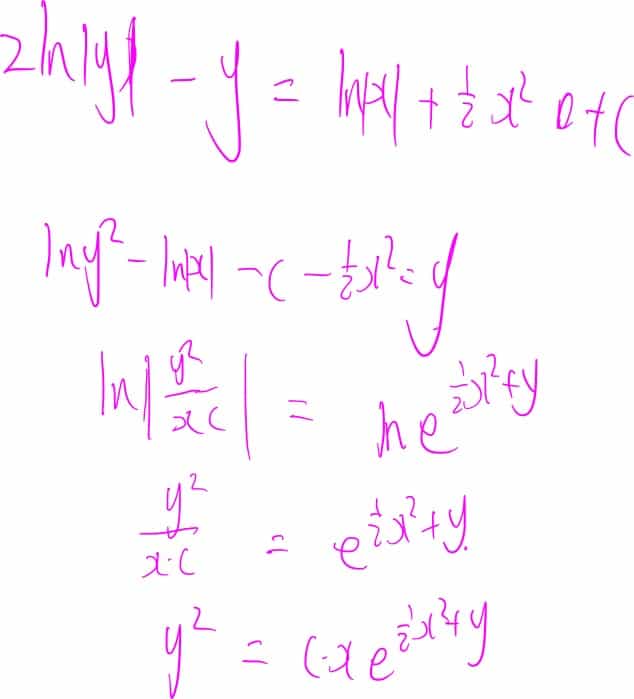 2ln|y| - y = ln|x| + ½x² + C
lny² - ln|x| - c - ½x² = y
ln|y²/xc| = ln e^(½x²+y)
y²/x·c = e^(½x²+y)
y² = c·xe^(½x²+y)